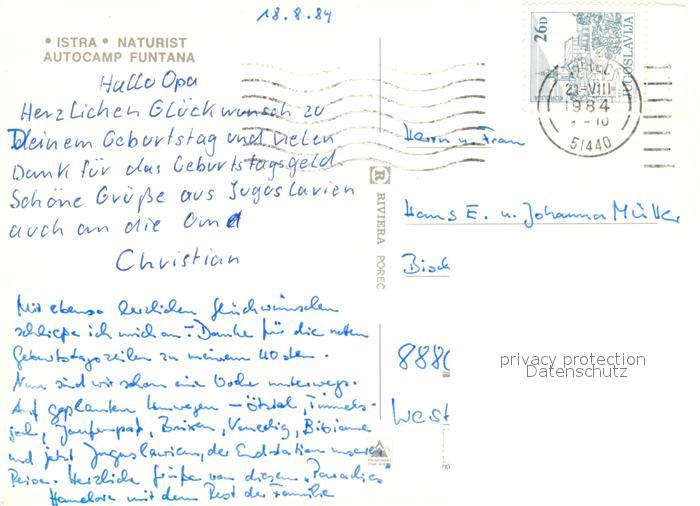 18.8.84
• ISTRA • NATURIST
AUTOCAMP FUNTANA
Hallo Opa
Herzlichen Glückwunsch zu
Deinem Geburtstag und vielen
Dank für das Geburtstagsgeld.
Schöne Grüße aus Jugoslavien
auch an die Oma
Christian
Mit ebenso herzlichen Glückwünschen
schließe ich mich an. – Danke für die netten
Geburtstagszeilen zu meinem 40sten.
Nun sind wir schon eine Woche unterwegs.
Auf geplanten Umwegen – Ötztal, Timmels-
joch, Jaufenpaß, Brixen, Venedig, Bibione
und jetzt Jugoslawien, der Endstation unserer
Reise. Herzliche Grüße von diesem Paradies
Hannelore mit dem Rest der Familie
R RIVIERA POREC
26D
JUGOSLAVIJA
21-VIII
1984
51440
Herrn u. Frau
Hans E. u. Johanna Müller
Bisch
888
West
privacy protection
Datenschutz